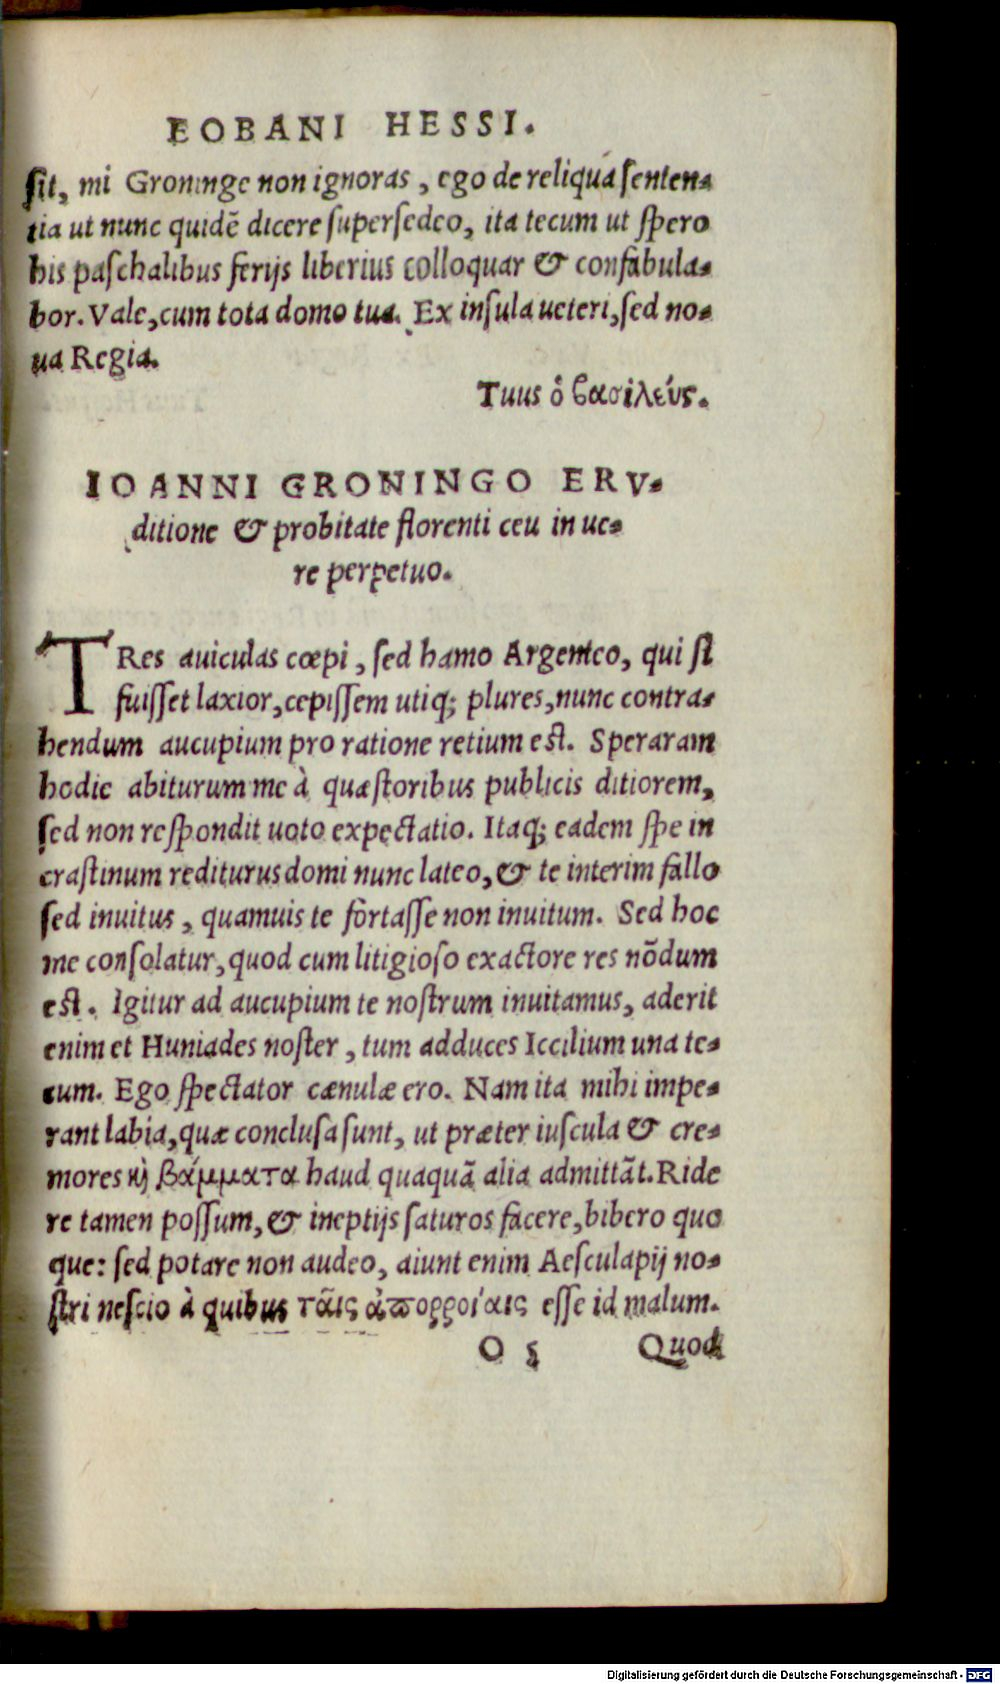 EOBANI HESSI.
sit, mi Groninge non ignoras, ego de reliqua senten-
tia ut nunc quidē dicere supersedeo, ita tecum ut spero
his paschalibus ferijs liberius colloquar & confabula-
bor. Vale, cum tota domo tua. Ex insula ueteri, sed no-
ua Regia.
Tuus ὁ βασιλεύς.
IOANNI GRONINGO ERV-
ditione & probitate florenti ceu in ue-
re perpetuo.
TRes auiculas cœpi, sed hamo Argenteo, qui si
fuisset laxior, cepissem utiq; plures, nunc contra-
hendum aucupium pro ratione retium est. Speraram
hodie abiturum me à quæstoribus publicis ditiorem,
sed non respondit uoto expectatio. Itaq; eadem spe in
crastinum rediturus domi nunc lateo, & te interim fallo
sed inuitus, quamuis te fortasse non inuitum. Sed hoc
me consolatur, quod cum litigioso exactore res nōdum
est. Igitur ad aucupium te nostrum inuitamus, aderit
enim et Huniades noster, tum adduces Iccilium una te-
cum. Ego spectator cænulæ ero. Nam ita mihi impe-
rant labia, quæ conclusa sunt, ut præter iuscula & cre-
mores καὶ βάμματα haud quaquā alia admittāt. Ride
re tamen possum, & ineptijs saturos facere, bibero quo
que: sed potare non audeo, aiunt enim Aesculapij no-
stri nescio à quibus ταῖς ἀποῤῥοίαις esse id malum.
O 5 Quod
Digitalisierung gefördert durch die Deutsche Forschungsgemeinschaft - DFG